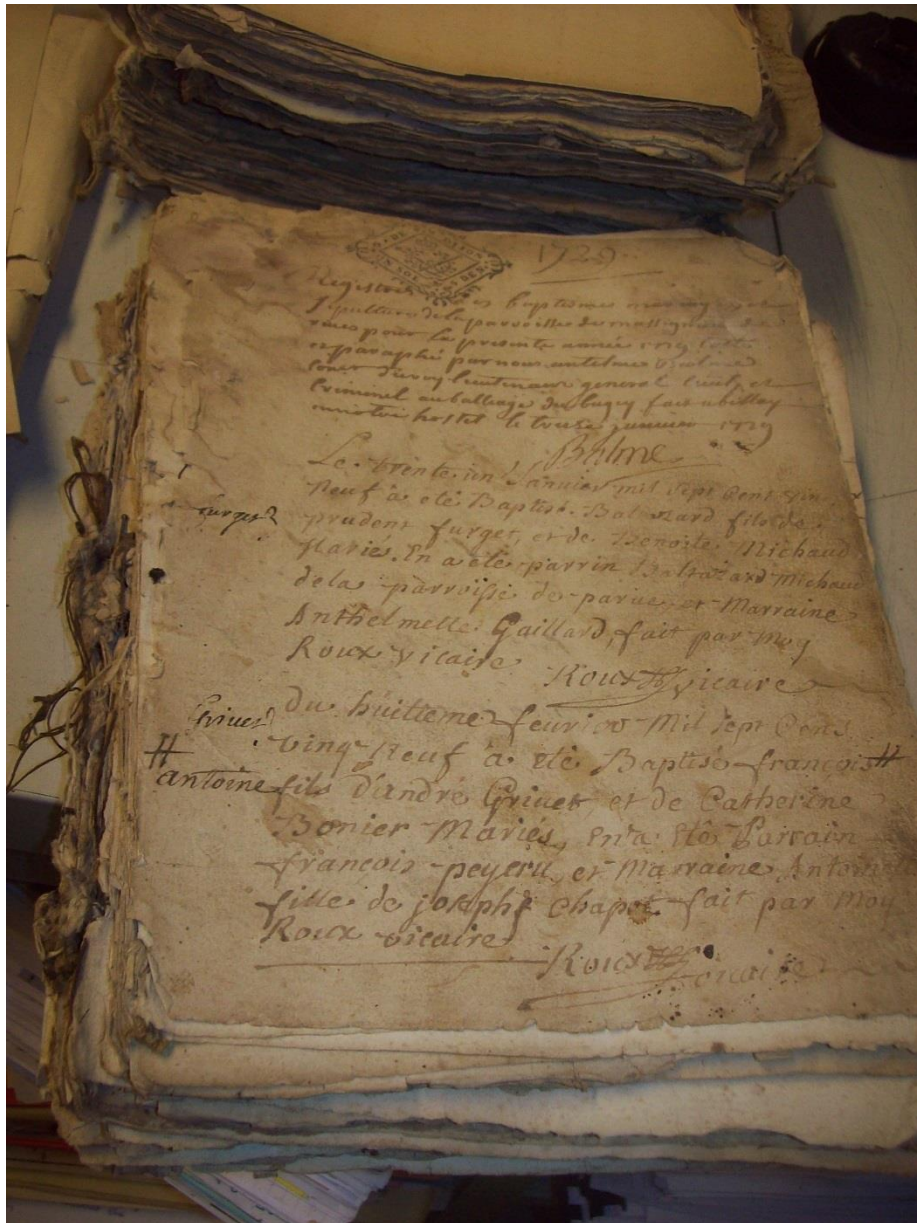 1729
Registre baptemes mariages et
sepultures de la parroisse de
pour la presente année 1729
et paraphé par nous antelme Balme
lieutenant general civil et
criminel au balliage du bugey fait a belley
en notre hostel le treize janvier 1729
Balme
Le trente un Janvier mil sept Cent vin
Neuf à eté Baptisé Baltazard fils de
furget
prudent furget, et de Benoite Michaud
Mariés. En a eté parrin Baltazard Michaud
de la parroisse de parve et Marraine
Anthelmette Gaillard, fait par Moy
Roux Vicaire
Roux Vicaire
Grivet
Du huitieme feuvrier Mil sept Cens
vingt Neuf à eté Baptisé françois #
# antoine
fils d'andré Grivet, et de Catherine
Bonier Mariés, en a eté Parrain
françois peyeru, et Marraine Antoine
fille de joseph Chapot fait par Moy
Roux vicaire
Roux vicaire